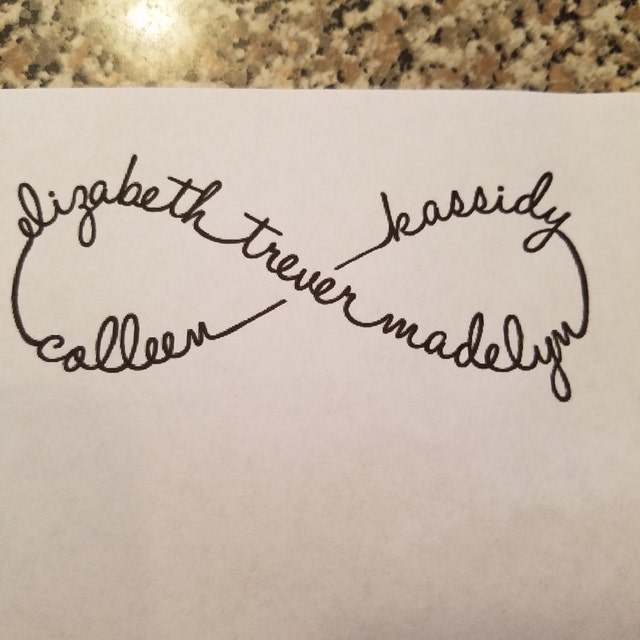 elizabeth trever kassidy
colleen madelyn